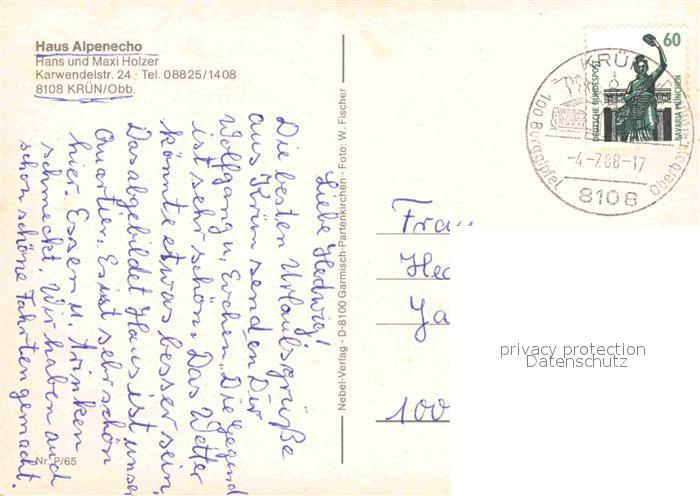 Haus Alpenecho
Hans und Maxi Holzer
Karwendelstr. 24 · Tel. 08825/1408
8108 KRÜN/Obb.
Liebe Hedwig!
Die besten Urlaubsgrüße
aus Krün senden Dir
Wolfgang u. Evchen. Die Gegend
ist sehr schön. Das Wetter
könnte etwas besser sein.
Das abgebildet Haus ist unser
Quartier. Es ist sehr schön
hier. Essen u. Trinken
schmeckt. Wir haben auch
schon schöne Fahrten gemacht.
Nr. P/65
Nebel-Verlag · D-8100 Garmisch-Partenkirchen · Foto: W. Fischer
60
DEUTSCHE BUNDESPOST
BAVARIA MÜNCHEN
KRÜN
100 Berggipfel
-4-7.88-17
8108
Frau
100
privacy protection
Datenschutz